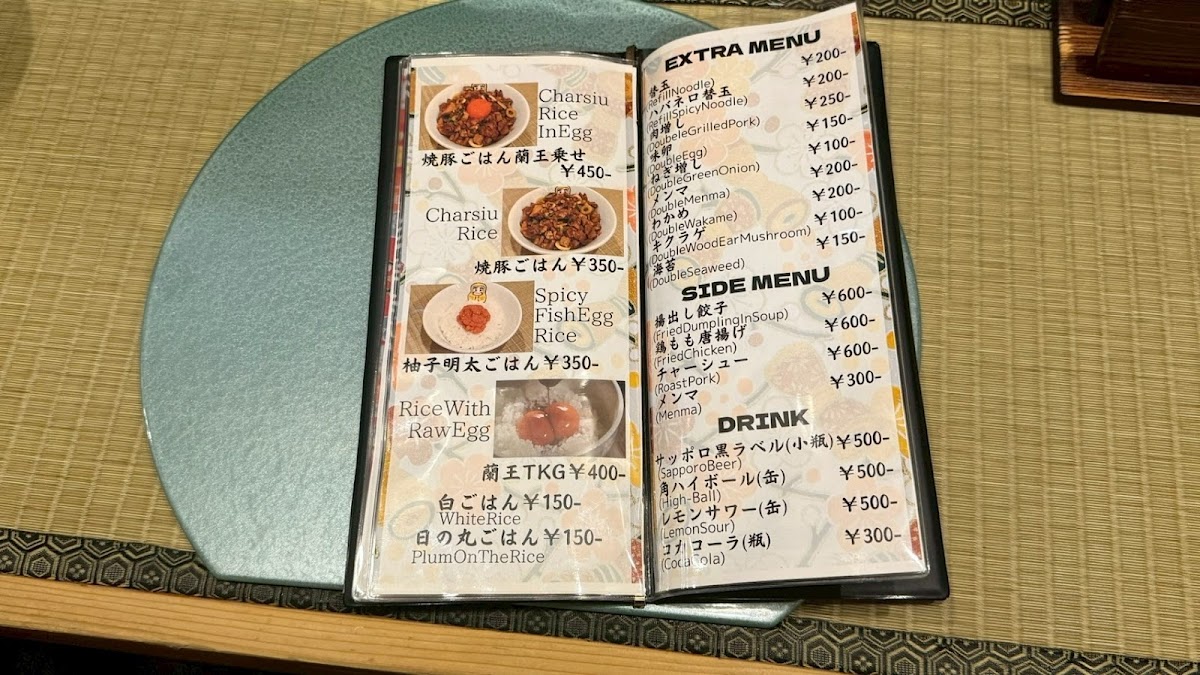 Charsiu
Rice
InEgg
焼豚ごはん蘭王乗せ
￥450-
Charsiu
Rice
焼豚ごはん￥350-
Spicy
FishEgg
Rice
柚子明太ごはん￥350-
RiceWith
RawEgg
蘭王TKG￥400-
白ごはん￥150-
WhiteRice
日の丸ごはん￥150-
PlumOnTheRice
EXTRA MENU
替玉 ￥200-
(RefillNoodle)
ハバネロ替玉 ￥200-
(RefillSpicyNoodle)
肉増し ￥250-
(DoubeleGrilledPork)
味卵 ￥150-
(DoubleEgg)
ねぎ増し ￥100-
(DoubleGreenOnion)
メンマ ￥200-
(DoubleMenma)
わかめ ￥200-
(DoubleWakame)
キクラゲ ￥100-
(DoubleWoodEarMushroom)
海苔 ￥150-
(DoubleSeaweed)
SIDE MENU
揚出し餃子 ￥600-
(FriedDumplingInSoup)
鶏もも唐揚げ ￥600-
(FriedChicken)
チャーシュー ￥600-
(RoastPork)
メンマ ￥300-
(Menma)
DRINK
サッポロ黒ラベル(小瓶)￥500-
(SapporoBeer)
角ハイボール(缶) ￥500-
(High-Ball)
レモンサワー(缶) ￥500-
(LemonSour)
コカコーラ(瓶) ￥300-
(CocaCola)